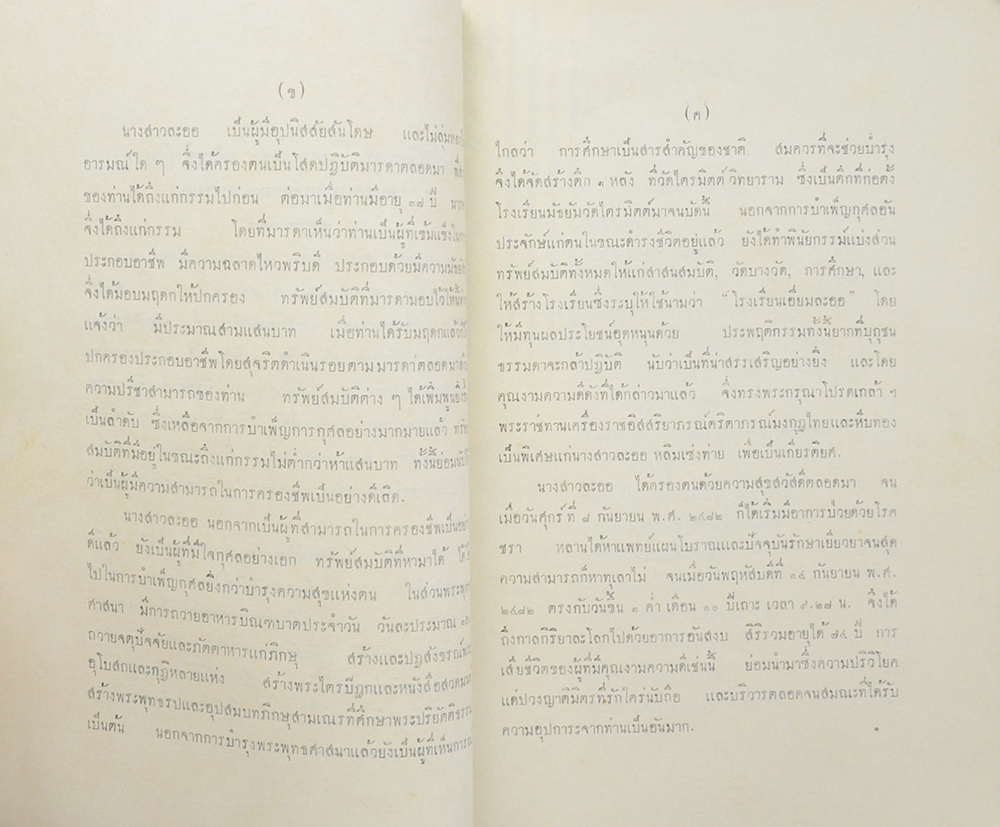 (ข)
นางสาวละออ เป็นผู้มีอุปนิสสัยสันโดษ และไม่ลุ่มหลง
อารมณ์ใด ๆ จึงได้ครองตนเป็นโสดปฏิบัติมารดาตลอดมา
ของท่านได้ถึงแก่กรรมไปก่อน ต่อมาเมื่อท่านมีอายุ ๓๗ ปี
จึงได้ถึงแก่กรรม โดยที่มารดาเห็นว่าท่านเป็นผู้ที่เข้มแข็งใน
ประกอบอาชีพ มีความฉลาดไหวพริบดี ประกอบด้วยมีความ
จึงได้มอบมฤดกให้ปกครอง ทรัพย์สมบัติที่มารดามอบไว้ให้นั้น
แจ้งว่า มีประมาณสามแสนบาท เมื่อท่านได้รับมฤดกแล้ว
ปกครองประกอบอาชีพโดยสุจริตดำเนินรอยตามมารดาตลอดมา
ความปรีชาสามารถของท่าน ทรัพย์สมบัติต่าง ๆ ได้เพิ่มพูนยิ่งขึ้น
เป็นลำดับ ซึ่งเหลือจากการบำเพ็ญการกุศลอย่างมากมายแล้ว ทรัพย์
สมบัติที่มีอยู่ในขณะถึงแก่กรรมไม่ต่ำกว่าห้าแสนบาท ทั้งนี้ย่อม
ว่าเป็นผู้มีความสามารถในการครองชีพเป็นอย่างดีเลิด.
นางสาวละออ นอกจากเป็นผู้ที่สามารถในการครองชีพเป็นอย่าง
ดีแล้ว ยังเป็นผู้ที่มีใจกุศลอย่างเอก ทรัพย์สมบัติที่หามาได้
ไปในการบำเพ็ญกุศลยิ่งกว่าบำรุงความสุขแห่งตน ในส่วนพระพุทธ
ศาสนา มีการถวายอาหารบิณฑบาตประจำวัน วันละประมาณ
ถวายจตุปัจจัยและภัตตาหารแก่ภิกษุ สร้างและปฏิสังขรณ์
อุโบสถและกุฏิหลายแห่ง สร้างพระไตรปิฎกและหนังสือสวดมนต์
สร้างพระพุทธรูปและอุปสมบทภิกษุสามเณรที่ศึกษาพระปริยัตติธรรม
เป็นต้น นอกจากการบำรุงพระพุทธศาสนาแล้วยังเป็นผู้ที่เห็นการณ์
(ค)
ไกลว่า การศึกษาเป็นสารสำคัญของชาติ สมควรที่จะช่วยบำรุง
จึงได้จัดสร้างตึก ๑ หลัง ที่วัดไตรมิตต์วิทยาราม ซึ่งเป็นตึกที่ก่อตั้ง
โรงเรียนมัธยมวัดไตรมิตต์มาจนบัดนี้ นอกจากการบำเพ็ญกุศลอัน
ประจักษ์แก่ตนในขณะดำรงชีวิตอยู่แล้ว ยังได้ทำพินัยกรรม์แบ่งส่วน
ทรัพย์สมบัติทั้งหมดให้แก่สาสนสมบัติ, วัดบางวัด, การศึกษา, และ
ให้สร้างโรงเรียนซึ่งระบุให้ใช้นามว่า “โรงเรียนเอี่ยมละออ” โดย
ให้มีทุนผลประโยชน์อุดหนุนด้วย ประพฤติกรรมทั้งนี้ยากที่บุถุชน
ธรรมดาจะกล้าปฏิบัติ นับว่าเป็นที่น่าสรรเสริญอย่างยิ่ง และโดย
คุณงามความดีดังที่ได้กล่าวมาแล้ว จึ่งทรงพระกรุณาโปรดเกล้า ฯ
พระราชทานเครื่องราชอิสสริยาภรณ์ตริตาภรณ์มงกุฎไทยและหีบทอง
เป็นพิเศษแก่นางสาวละออ หลิมเซ่งท่าย เพื่อเป็นเกียรติยศ.
นางสาวละออ ได้ครองตนด้วยความสุขสวัสดีตลอดมา จน
เมื่อวันศุกร์ที่ ๘ กันยายน พ.ศ. ๒๔๘๒ ก็ได้เริ่มมีอาการป่วยด้วยโรค
ชรา หลานได้หาแพทย์แผนโบราณและปัจจุบันรักษาเยียวยาจนสุด
ความสามารถก็หาทุเลาไม่ จนเมื่อวันพฤหัสบดีที่ ๑๔ กันยายน พ.ศ.
๒๔๘๒ ตรงกับวันขึ้น ๑ ค่ำ เดือน ๑๐ ปีเถาะ เวลา ๙.๒๘ น. จึ่งได้
ถึงกาลกิริยาละโลกไปด้วยอาการอันสงบ สิริรวมอายุได้ ๘๕ ปี การ
เสียชีวิตของผู้ที่มีคุณงามความดีเช่นนี้ ย่อมนำมาซึ่งความปริวิโยค
แด่ปวงญาติมิตรที่รักใคร่นับถือ และบริวารตลอดจนสมณะที่ได้รับ
ความอุปการะจากท่านเป็นอันมาก.